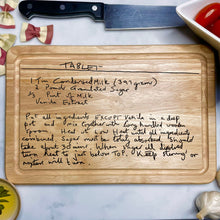 TABLET
1 Tin Condensed Milk (397 grams)
2 Pounds Granulated Sugar
1/3 Pint of Milk
Vanilla Extract
Put all ingredients EXCEPT Vanilla in a deep
pot and mix together with long handled wooden
spoon. Heat at Low Heat until all ingredients
combined. Sugar must be totally absorbed. Should
take about 30 mins. When sugar all dissolved
turn heat to just below TOP. Keep stirring or
mixture will burn